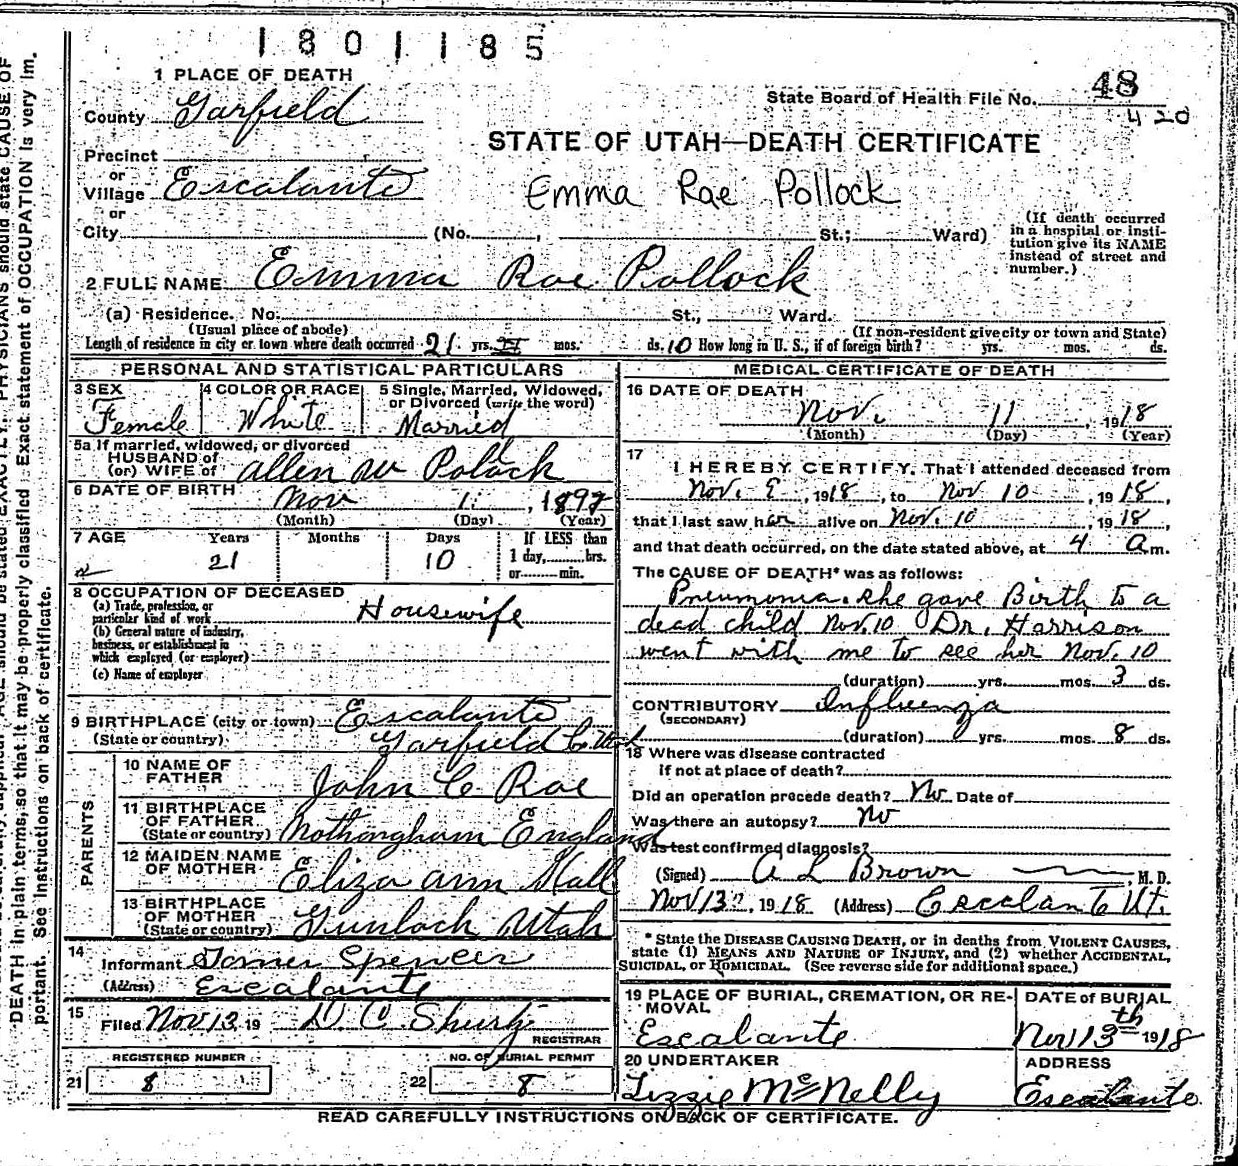 1801185
48
State Board of Health File No.
420
STATE OF UTAH—DEATH CERTIFICATE
Emma Rae Pollock
1 PLACE OF DEATH
County Garfield
Precinct
or
Village Escalante
or
City (No. , St.; Ward)
(If death occurred
in a hospital or insti-
tution give its NAME
instead of street and
number.)
2 FULL NAME Emma Roe Pollock
(a) Residence. No. St., Ward.
(Usual place of abode) (If non-resident give city or town and State)
Length of residence in city or town where death occurred 21 yrs. mos. ds. 10 How long in U. S., if of foreign birth? yrs. mos. ds.
PERSONAL AND STATISTICAL PARTICULARS
3 SEX
Female
4 COLOR OR RACE
White
5 Single, Married, Widowed,
or Divorced (write the word)
Married
5a If married, widowed, or divorced
HUSBAND of
(or) WIFE of Allen W Polock
6 DATE OF BIRTH
Nov 1. , 1897
(Month) (Day) (Year)
7 AGE Years Months Days If LESS than
21 10 1 day, hrs.
or min.
8 OCCUPATION OF DECEASED
(a) Trade, profession, or
particular kind of work Housewife
(b) General nature of industry,
business, or establishment in
which employed (or employer)
(c) Name of employer
9 BIRTHPLACE (city or town) Escalante
(State or country) Garfield Co. Utah
PARENTS
10 NAME OF
FATHER John C Roe
11 BIRTHPLACE
OF FATHER
(State or country) Nothangham England
12 MAIDEN NAME
OF MOTHER Eliza Ann Hall
13 BIRTHPLACE
OF MOTHER
(State or country) Gunlock Utah
14
Informant Spencer
(Address) Escalante
15
Filed Nov 13, 19 D. C. Shurtz
REGISTRAR
REGISTERED NUMBER NO. OF BURIAL PERMIT
21 8 22 8
MEDICAL CERTIFICATE OF DEATH
16 DATE OF DEATH
Nov. 11 , 1918
(Month) (Day) (Year)
17
I HEREBY CERTIFY, That I attended deceased from
Nov. 9 , 1918 , to Nov 10 , 1918,
that I last saw her alive on Nov. 10 , 1918,
and that death occurred, on the date stated above, at 4 a m.
The CAUSE OF DEATH* was as follows:
Pneumonia. she gave Birth to a
dead child Nov. 10 Dr. Harrison
went with me to see her Nov. 10
(duration) yrs. mos. 3 ds.
CONTRIBUTORY Influenza
(SECONDARY)
(duration) yrs. mos. 8 ds.
18 Where was disease contracted
if not at place of death?
Did an operation precede death? No Date of
Was there an autopsy? No
Was test confirmed diagnosis?
(Signed) A L Brown , M. D.
Nov 13, 1918 (Address) Escalante Ut.
* State the DISEASE CAUSING DEATH, or in deaths from VIOLENT CAUSES,
state (1) MEANS AND NATURE OF INJURY, and (2) whether ACCIDENTAL,
SUICIDAL, or HOMICIDAL. (See reverse side for additional space.)
19 PLACE OF BURIAL, CREMATION, OR RE-
MOVAL
Escalante
DATE of BURIAL
Nov 13th 1918
20 UNDERTAKER
Lizzie McNelly
ADDRESS
Escalante
READ CAREFULLY INSTRUCTIONS ON BACK OF CERTIFICATE.
PHYSICIANS should state CAUSE OF
DEATH in plain terms, so that it may be properly classified. Exact statement of OCCUPATION is very im-
portant. See instructions on back of certificate.